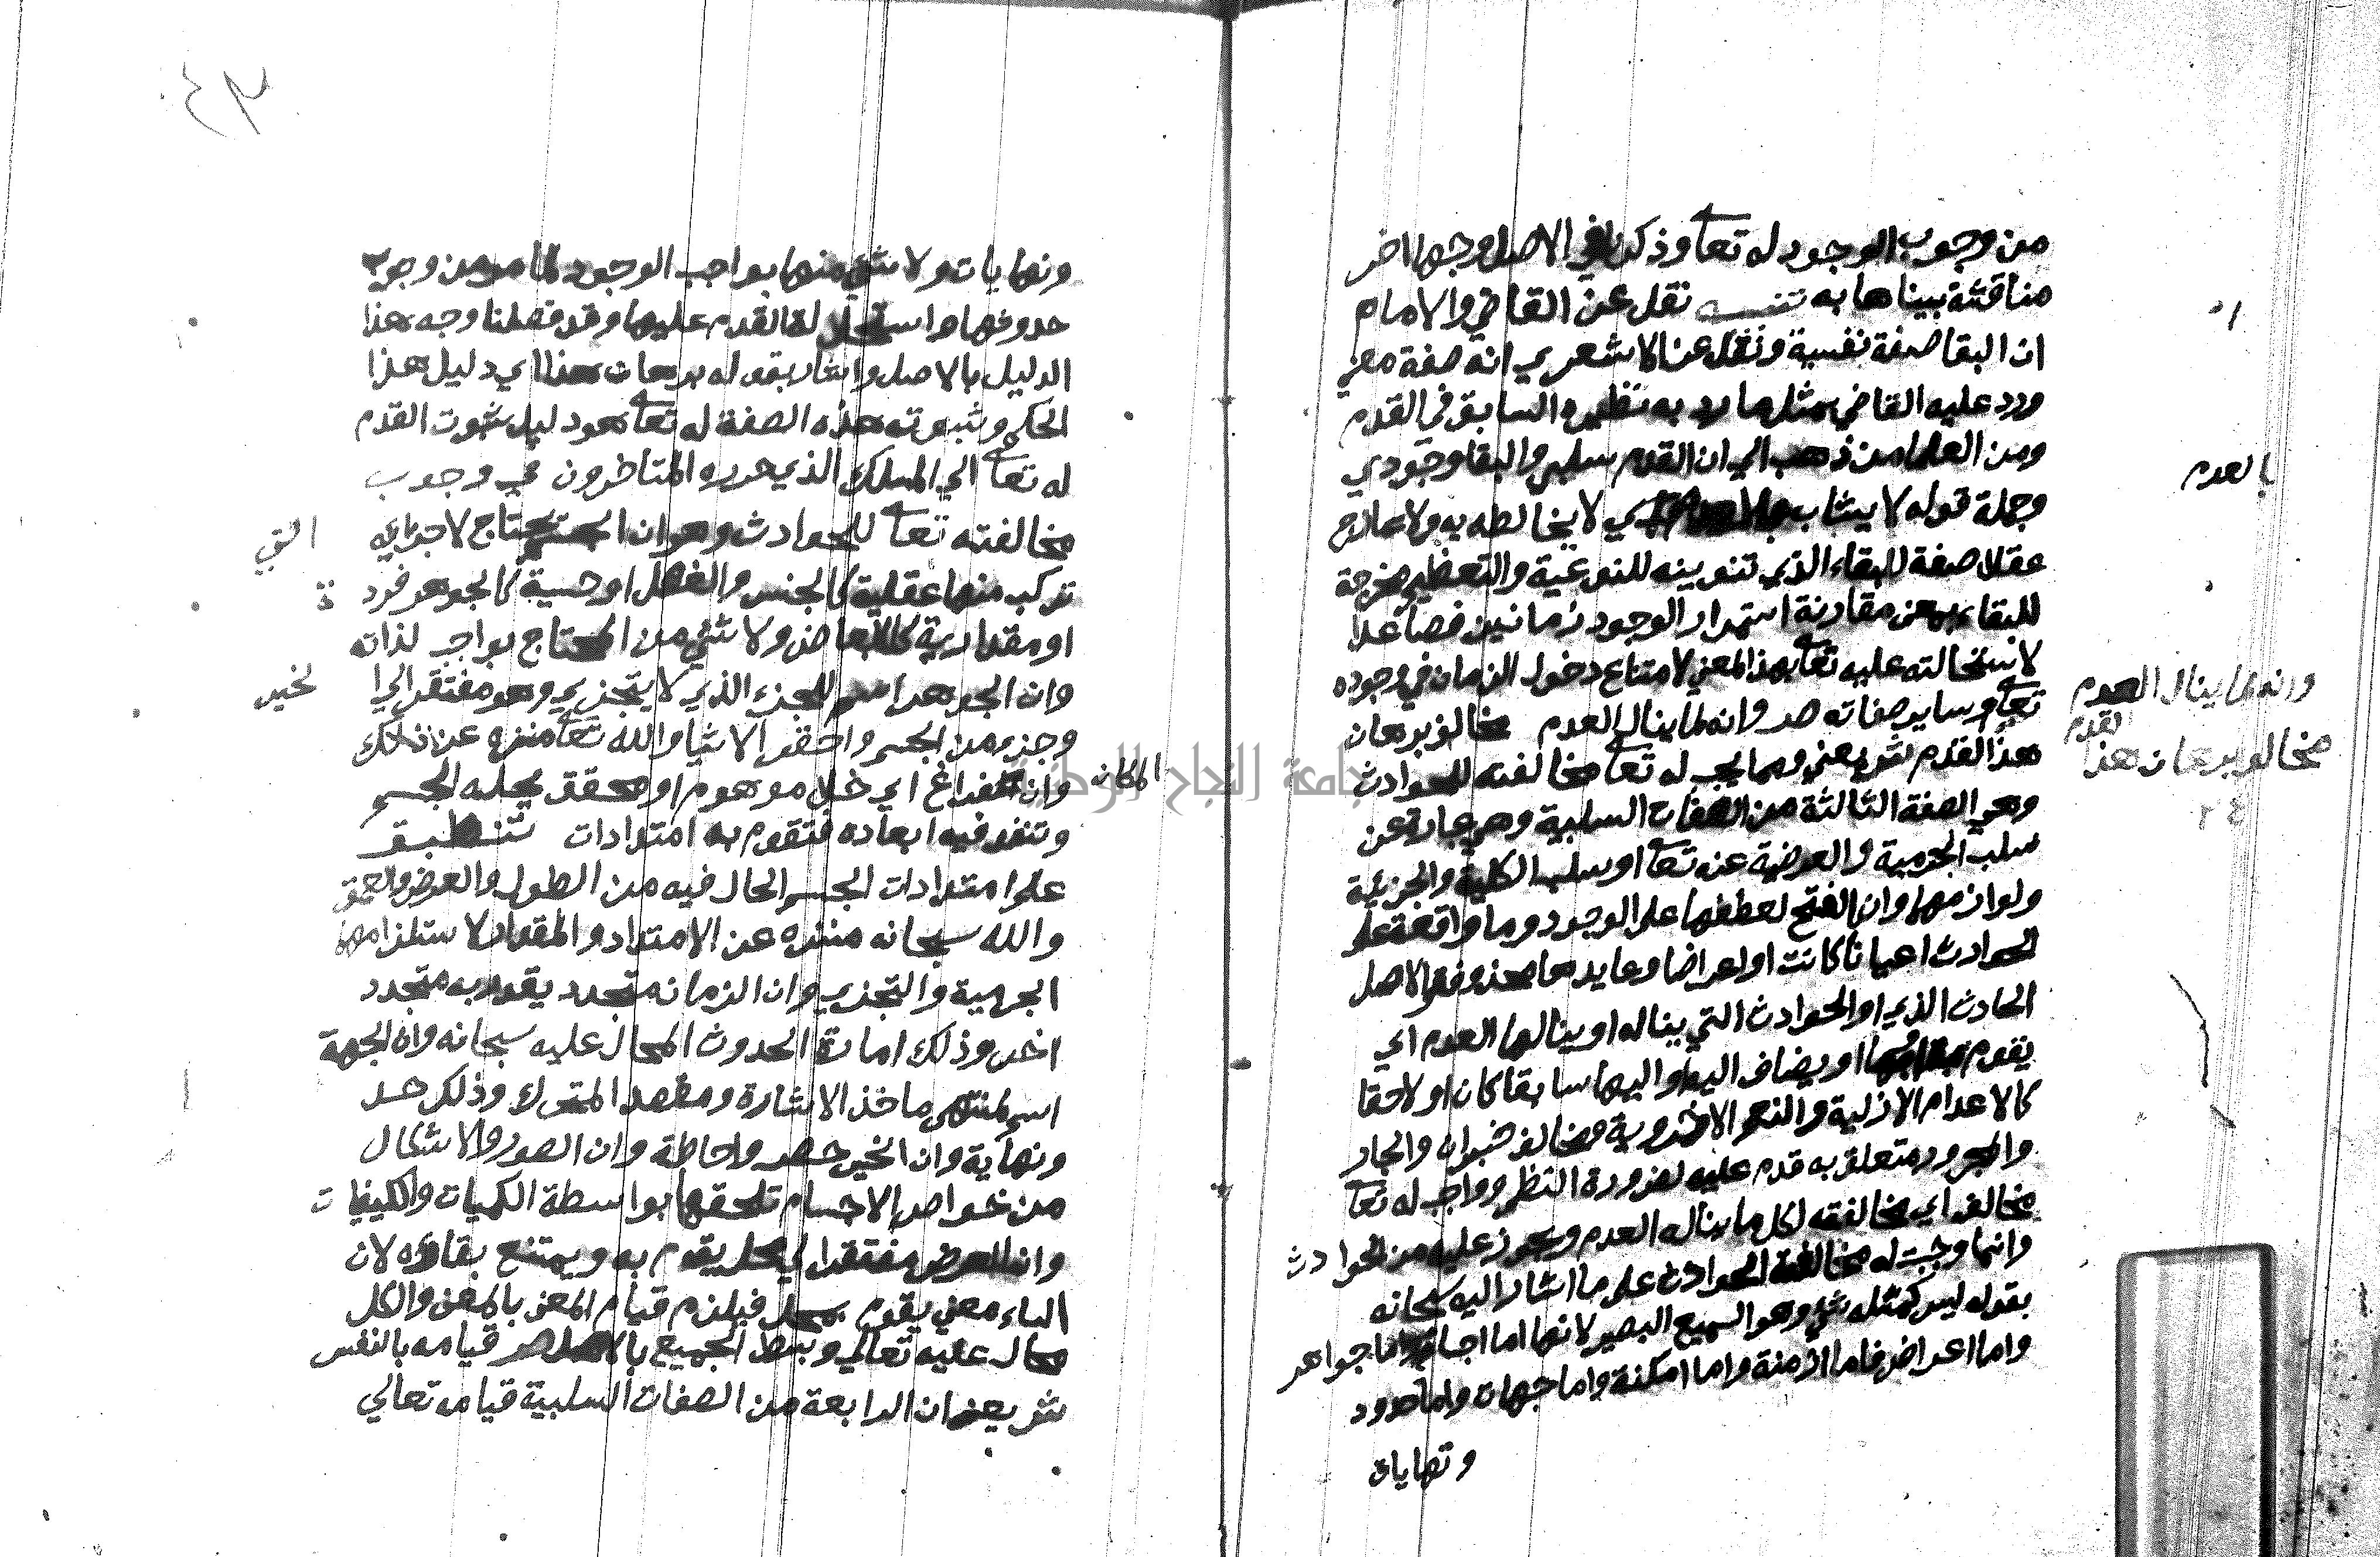 من وجوب الوجود له تعا وذكرنا في الاصل وجها اخر
مناقشة بيناها به تنبيه نقل عن القاضي والامام
ان البقا صفة نفسية ونقل عن الاشعري انه صفة معني
ورد عليه القاضي بمثل ما رد به نظيره السابق في القدم
ومن العلما من ذهب الي ان القدم سلبي والبقا وجودي
وجملة قوله لا يشاب اي لا يخالطه به ولا يمازج
بالعدم
عقلا صفة للبقاء الذي تنوينه للنوعية والتعظيم مخرجة
للبقاء بمعني مقارنة استمرار الوجود زمانين فصاعدا
لاستحالته عليه تعا بهذا المعني لامتناع دخول الزمان في وجوده
تعا وساير صفاته ص وانه لما ينال العدم مخالف برهان
وانه لما ينال العدم
مخالف برهان هذا
القدم
هذا القدم ش يعني ومما يجب له تعا مخالفته للحوادث
وهي الصفة الثالثة من الصفات السلبية وهي عبارة عن
سلب الجرمية والعرضية عنه تعا او سلب الكلية والجزئية
ولوازمهما وان بالفتح لعطفها علي الوجود وما واقعة علي
الحوادث اعيانا كانت او اعراضا وعايدها محذوف والاصل
الحادث الذي او الحوادث التي يناله او ينالها العدم اي
يقوم او يضاف اليه او اليها سابقا كان او لاحقا
كالاعدام الازلية والنعم الاخروية ومخالف خبر ان والجار
والمجرور متعلق به قدم عليه لضرورة النظم وواجب له تعا
مخالف اي مخالفته لكل ما يناله العدم ويجوز عليه من الحوادث
وانما وجبت له مخالفة الحوادث علي ما اشار اليه سبحانه
بقوله ليس كمثله شي وهو السميع البصير لانها اما اجسام واما جواهر
واما اعراض واما ازمنة واما امكنة واما جهات واما حدود
ونهايات
ونهايات ولا شي منها بواجب الوجود لما مر من وجوب
حدوثها واستحالة القدم عليها وقد فصلنا وجه هذا
الدليل بالاصل واشار بقوله برهان هذا اي دليل هذا
الحكم وثبوته هذه الصفة له تعا هو دليل ثبوت القدم
له تعا الي المسلك الذي حرره المتاخرون في وجوب
مخالفته تعا للحوادث وهو ان الجسم يحتاج لاجزايه
التي
تركب منها عقلية كالجنس والفصل او حسية كالجوهر فرد
ة
او مقدارية كالابعاض ولا شي من المحتاج بواجب لذاته
وان الجوهر اسم للجزء الذي لا يتجزي وهو مفتقر الي
لحيز
وجزو من الجسم واحقر الاشيا والله تعا منزه عن ذلك
المكان
وان فراغ اي خلا موهوم او محقق يحله الجسم
وتنفذ فيه ابعاده فتقوم به امتدادات تنطبق
علي امتدادات الجسم الحال فيه من الطول والعرض والعمق
والله سبحانه منزه عن الامتداد والمقدار لاستلزامهما
الجرمية والتجزي وان الزمان متجدد يقدر به متجدد
اخر وذلك امارة الحدوث المحال عليه سبحانه وان الجهة
اسم لمنتهي ماخذ الاشارة ومقصد المتحرك وذلك حد
ونهاية وان الحيز حصر واحاطة وان الصور والاشكال
من خواص الاجسام تلحقها بواسطة الكميات والكيفيات
وان العرض مفتقر الي محل يقوم به ويمتنع بقاؤه لان
البقاء معني يقوم بمحل فيلزم قيام المعني بالمعني والكل
محال عليه تعالي وبسط الجميع بالاصل ص قيامه بالنفس
ش يعني ان الرابعة من الصفات السلبية قيامه تعالي
جامعة النجاح الوطنية